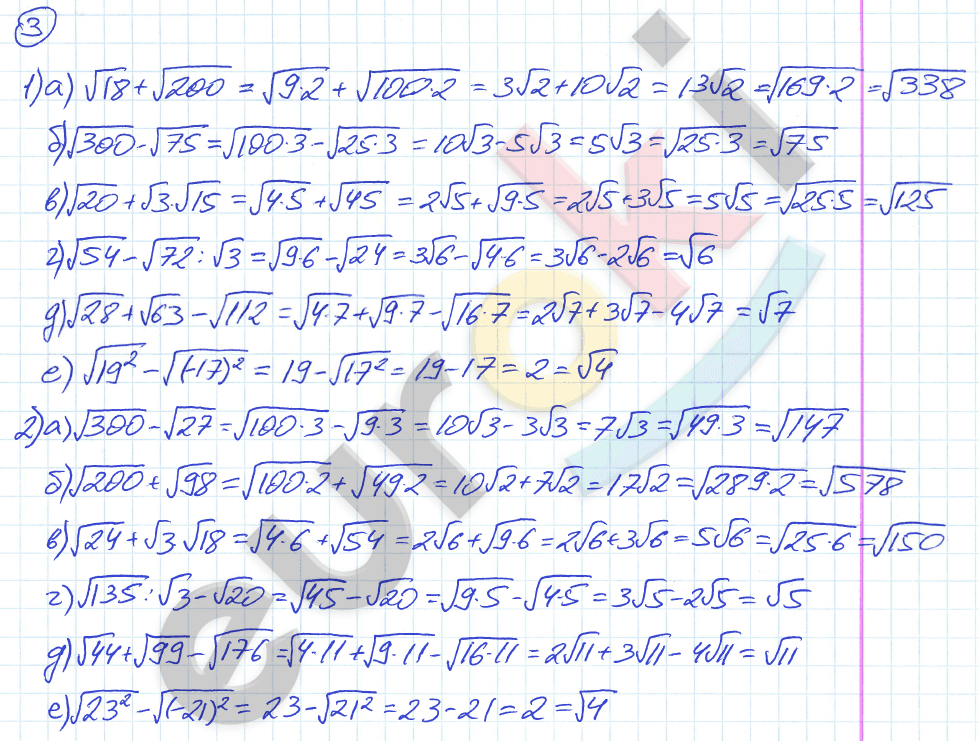 3
1) а) √18 + √200 = √9·2 + √100·2 = 3√2 + 10√2 = 13√2 = √169·2 = √338
б) √300 - √75 = √100·3 - √25·3 = 10√3 - 5√3 = 5√3 = √25·3 = √75
в) √20 + √3·√15 = √4·5 + √45 = 2√5 + √9·5 = 2√5 + 3√5 = 5√5 = √25·5 = √125
г) √54 - √72 : √3 = √9·6 - √24 = 3√6 - √4·6 = 3√6 - 2√6 = √6
д) √28 + √63 - √112 = √4·7 + √9·7 - √16·7 = 2√7 + 3√7 - 4√7 = √7
е) √19² - √(-17)² = 19 - √17² = 19 - 17 = 2 = √4
2) а) √300 - √27 = √100·3 - √9·3 = 10√3 - 3√3 = 7√3 = √49·3 = √147
б) √200 + √98 = √100·2 + √49·2 = 10√2 + 7√2 = 17√2 = √289·2 = √578
в) √24 + √3·√18 = √4·6 + √54 = 2√6 + √9·6 = 2√6 + 3√6 = 5√6 = √25·6 = √150
г) √135 : √3 - √20 = √45 - √20 = √9·5 - √4·5 = 3√5 - 2√5 = √5
д) √44 + √99 - √176 = √4·11 + √9·11 - √16·11 = 2√11 + 3√11 - 4√11 = √11
е) √23² - √(-21)² = 23 - √21² = 23 - 21 = 2 = √4
euroki